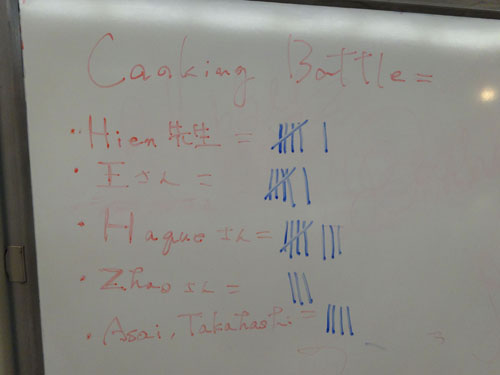 Cooking Battle =
・Hien 先生 = 卌 |
・王さん = 卌 |
・Haque さん = 卌 |||
・Zhao さん = |||
・Asai, Takahashi = ||||